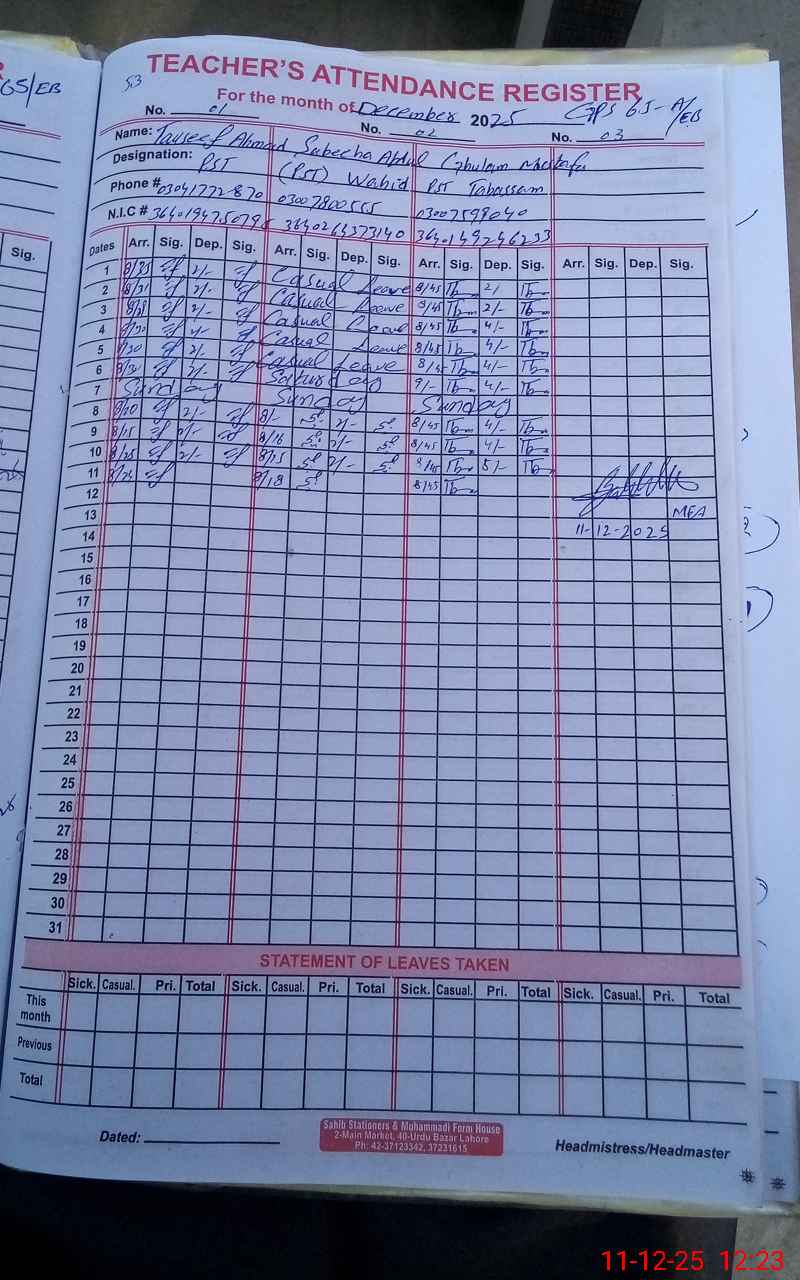 GS/EB
53
TEACHER'S ATTENDANCE REGISTER
For the month of December 2025 GPS 65-A/EB
No. 01 No. 02 No. 03
Name: Tauseef Ahmad Sabeeha Abdul Ghulam Mustafa
Designation: PST (PST) Wahid PST Tabassam
Phone # 03041772870 03007800555 03007598040
N.I.C # 3640194750795 3640264373140 3640149246233
Dates Arr. Sig. Dep. Sig. Arr. Sig. Dep. Sig. Arr. Sig. Dep. Sig. Arr. Sig. Dep. Sig.
Sig.
1 8/35 2/- Casual Leave 8/45 2/
2 8/31 2/- Casual Leave 8/45 2/-
3 2/- Casual Leave 8/45 4/-
4 8/30 Casual Leave 8/45 4/-
5 8/30 2/- Casual Leave 8/45 4/-
6 8/30 2/- Saturday 9/- 4/-
7 Sunday Sunday Sunday
8 2/- 8/- 2/- 8/45 4/-
9 8/15 2/- 8/16 2/- 8/45 4/-
10 8/25 2/- 8/15 2/- 8/45 5/-
11 8/25 8/18 8/45
12
MEA
13
11-12-2025
14
15
16
17
18
19
20
21
22
23
24
25
26
27
28
29
30
31
STATEMENT OF LEAVES TAKEN
Sick. Casual. Pri. Total Sick. Casual. Pri. Total Sick. Casual. Pri. Total Sick. Casual. Pri. Total
This month
Previous
Total
Dated:
Sahib Stationers & Muhammadi Form House
2-Main Market, 40-Urdu Bazar Lahore
Ph: 42-37123342, 37231615
Headmistress/Headmaster
11-12-25 12:23